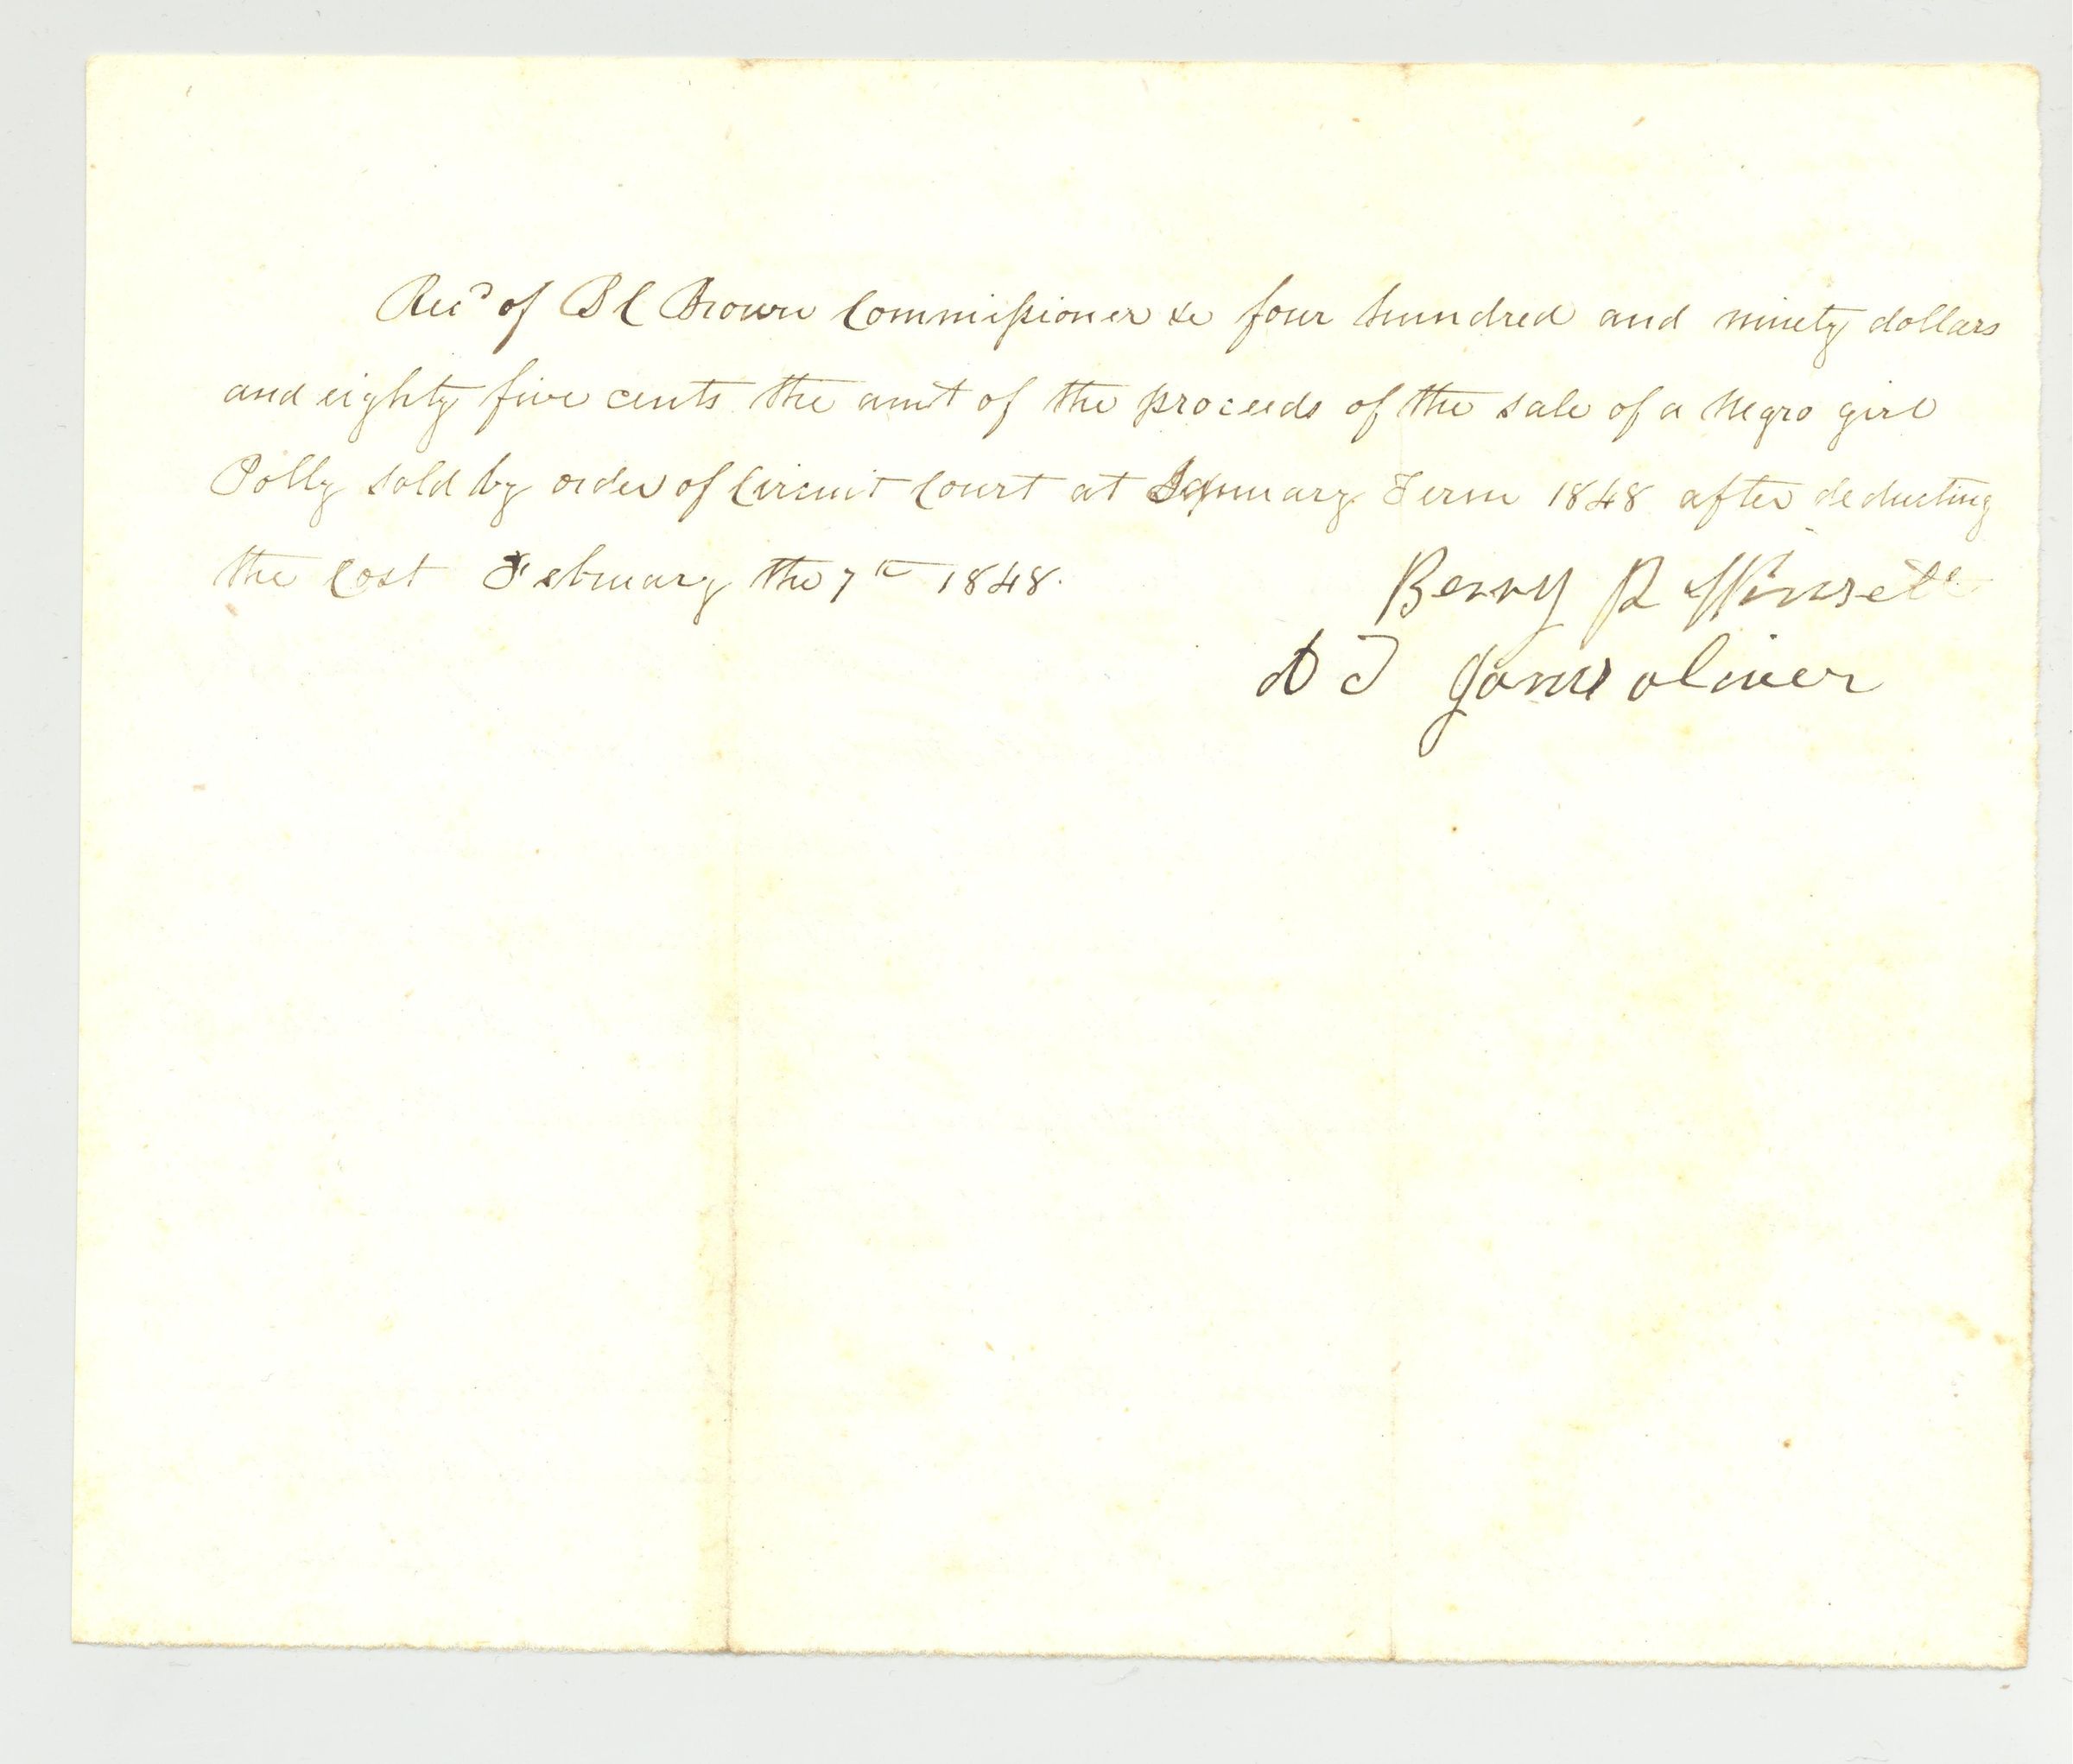 Recd of B C Brown Commissioner &c four hundred and ninety dollars
and eighty five cents the amt of the proceeds of the sale of a Negro girl
Polly sold by order of Circuit Court at January Term 1848 after deducting
the Cost February the 7th 1848.
Berry R Winsett
A J James oliver